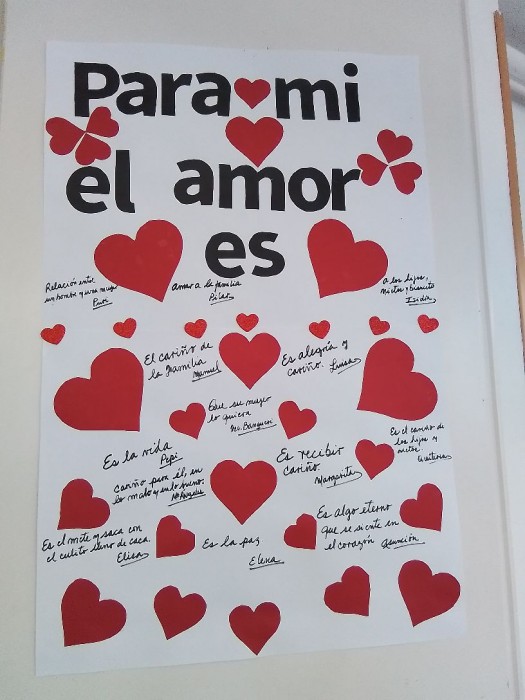 Para mi
el amor
es
Relación entre
un hombre y una mujer
Puri
amar a la familia
Pilar
a los hijos,
nietos y bisnieto
Isidra
El cariño de
la familia
Manuel
Es alegría y
cariño. Luisa
Que su mujer
lo quiera
Es la vida
Pepi
cariño para él, en
lo malo y en lo bueno.
Mª Angeles
Es recibir
cariño
Margarita
Es el cariño de
los hijos y
nietos
Es el mete y saca con
el culito lleno de caca.
Elisa
Es la paz
Elena
Es algo eterno
que se siente en
el corazón Asunción